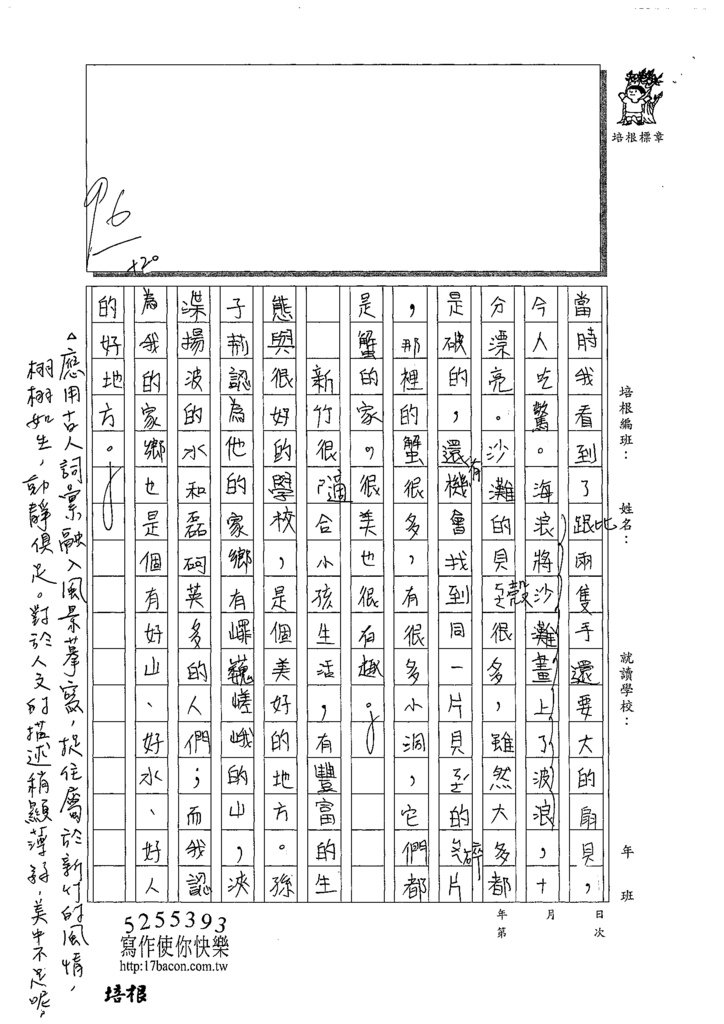 培根標章
培根編班：
姓名：
就讀學校：
年　班
日　次
月
年　第
96
+20
當時我看到了跟比兩隻手還要大的扇貝，
令人吃驚。海浪將沙灘畫上了波浪，十
分漂亮。沙灘的貝殼很多，雖然大多都
是破的，還有機會找到同一片貝殼的碎片
，那裡的蟹很多，有很多小洞，它們都
是蟹的家。很美也很有趣。
新竹很適合小孩生活，有豐富的生
態與很好的學校，是個美好的地方。孫
子荊認為他的家鄉有嶵巍嵯峨的山，浹
渫揚波的水和磊砢英多的人們；而我認
為我的家鄉也是個有好山、好水、好人
的好地方。
△應用古人詞彙融入風景摹寫，捉住屬於新竹的風情，
栩栩如生，動靜俱足。對於人文的描述稍顯薄弱，美中不足呢。
5255393
寫作使你快樂
http:17bacon.com.tw
培根